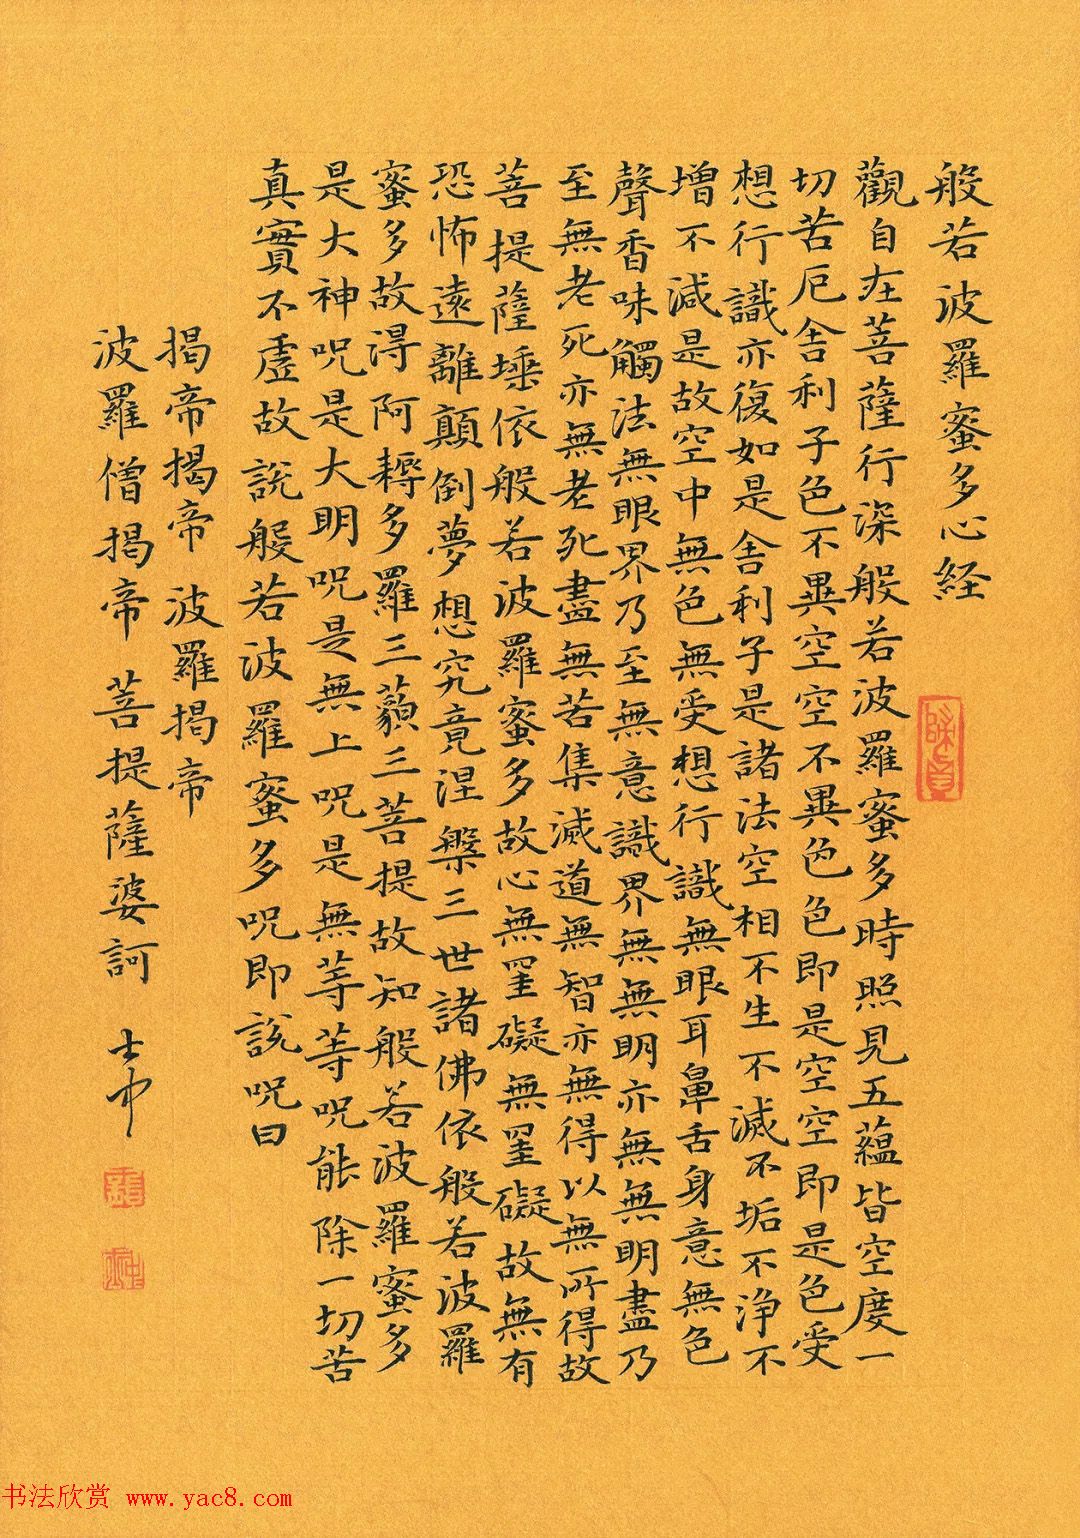 般若波羅蜜多心経
觀自在菩薩行深般若波羅蜜多時照見五蘊皆空度一
切苦厄舍利子色不異空空不異色色即是空空即是色受
想行識亦復如是舍利子是諸法空相不生不滅不垢不淨不
增不減是故空中無色無受想行識無眼耳鼻舌身意無色
聲香味觸法無眼界乃至無意識界無無明亦無無明盡乃
至無老死亦無老死盡無苦集滅道無智亦無得以無所得故
菩提薩埵依般若波羅蜜多故心無罣礙無罣礙故無有
恐怖遠離顛倒夢想究竟涅槃三世諸佛依般若波羅
蜜多故得阿耨多羅三藐三菩提故知般若波羅蜜多
是大神咒是大明咒是無上咒是無等等咒能除一切苦
真實不虛故說般若波羅蜜多咒即說咒曰
揭帝揭帝 波羅揭帝
波羅僧揭帝 菩提薩婆訶 士中
书法欣赏 www.yac8.com